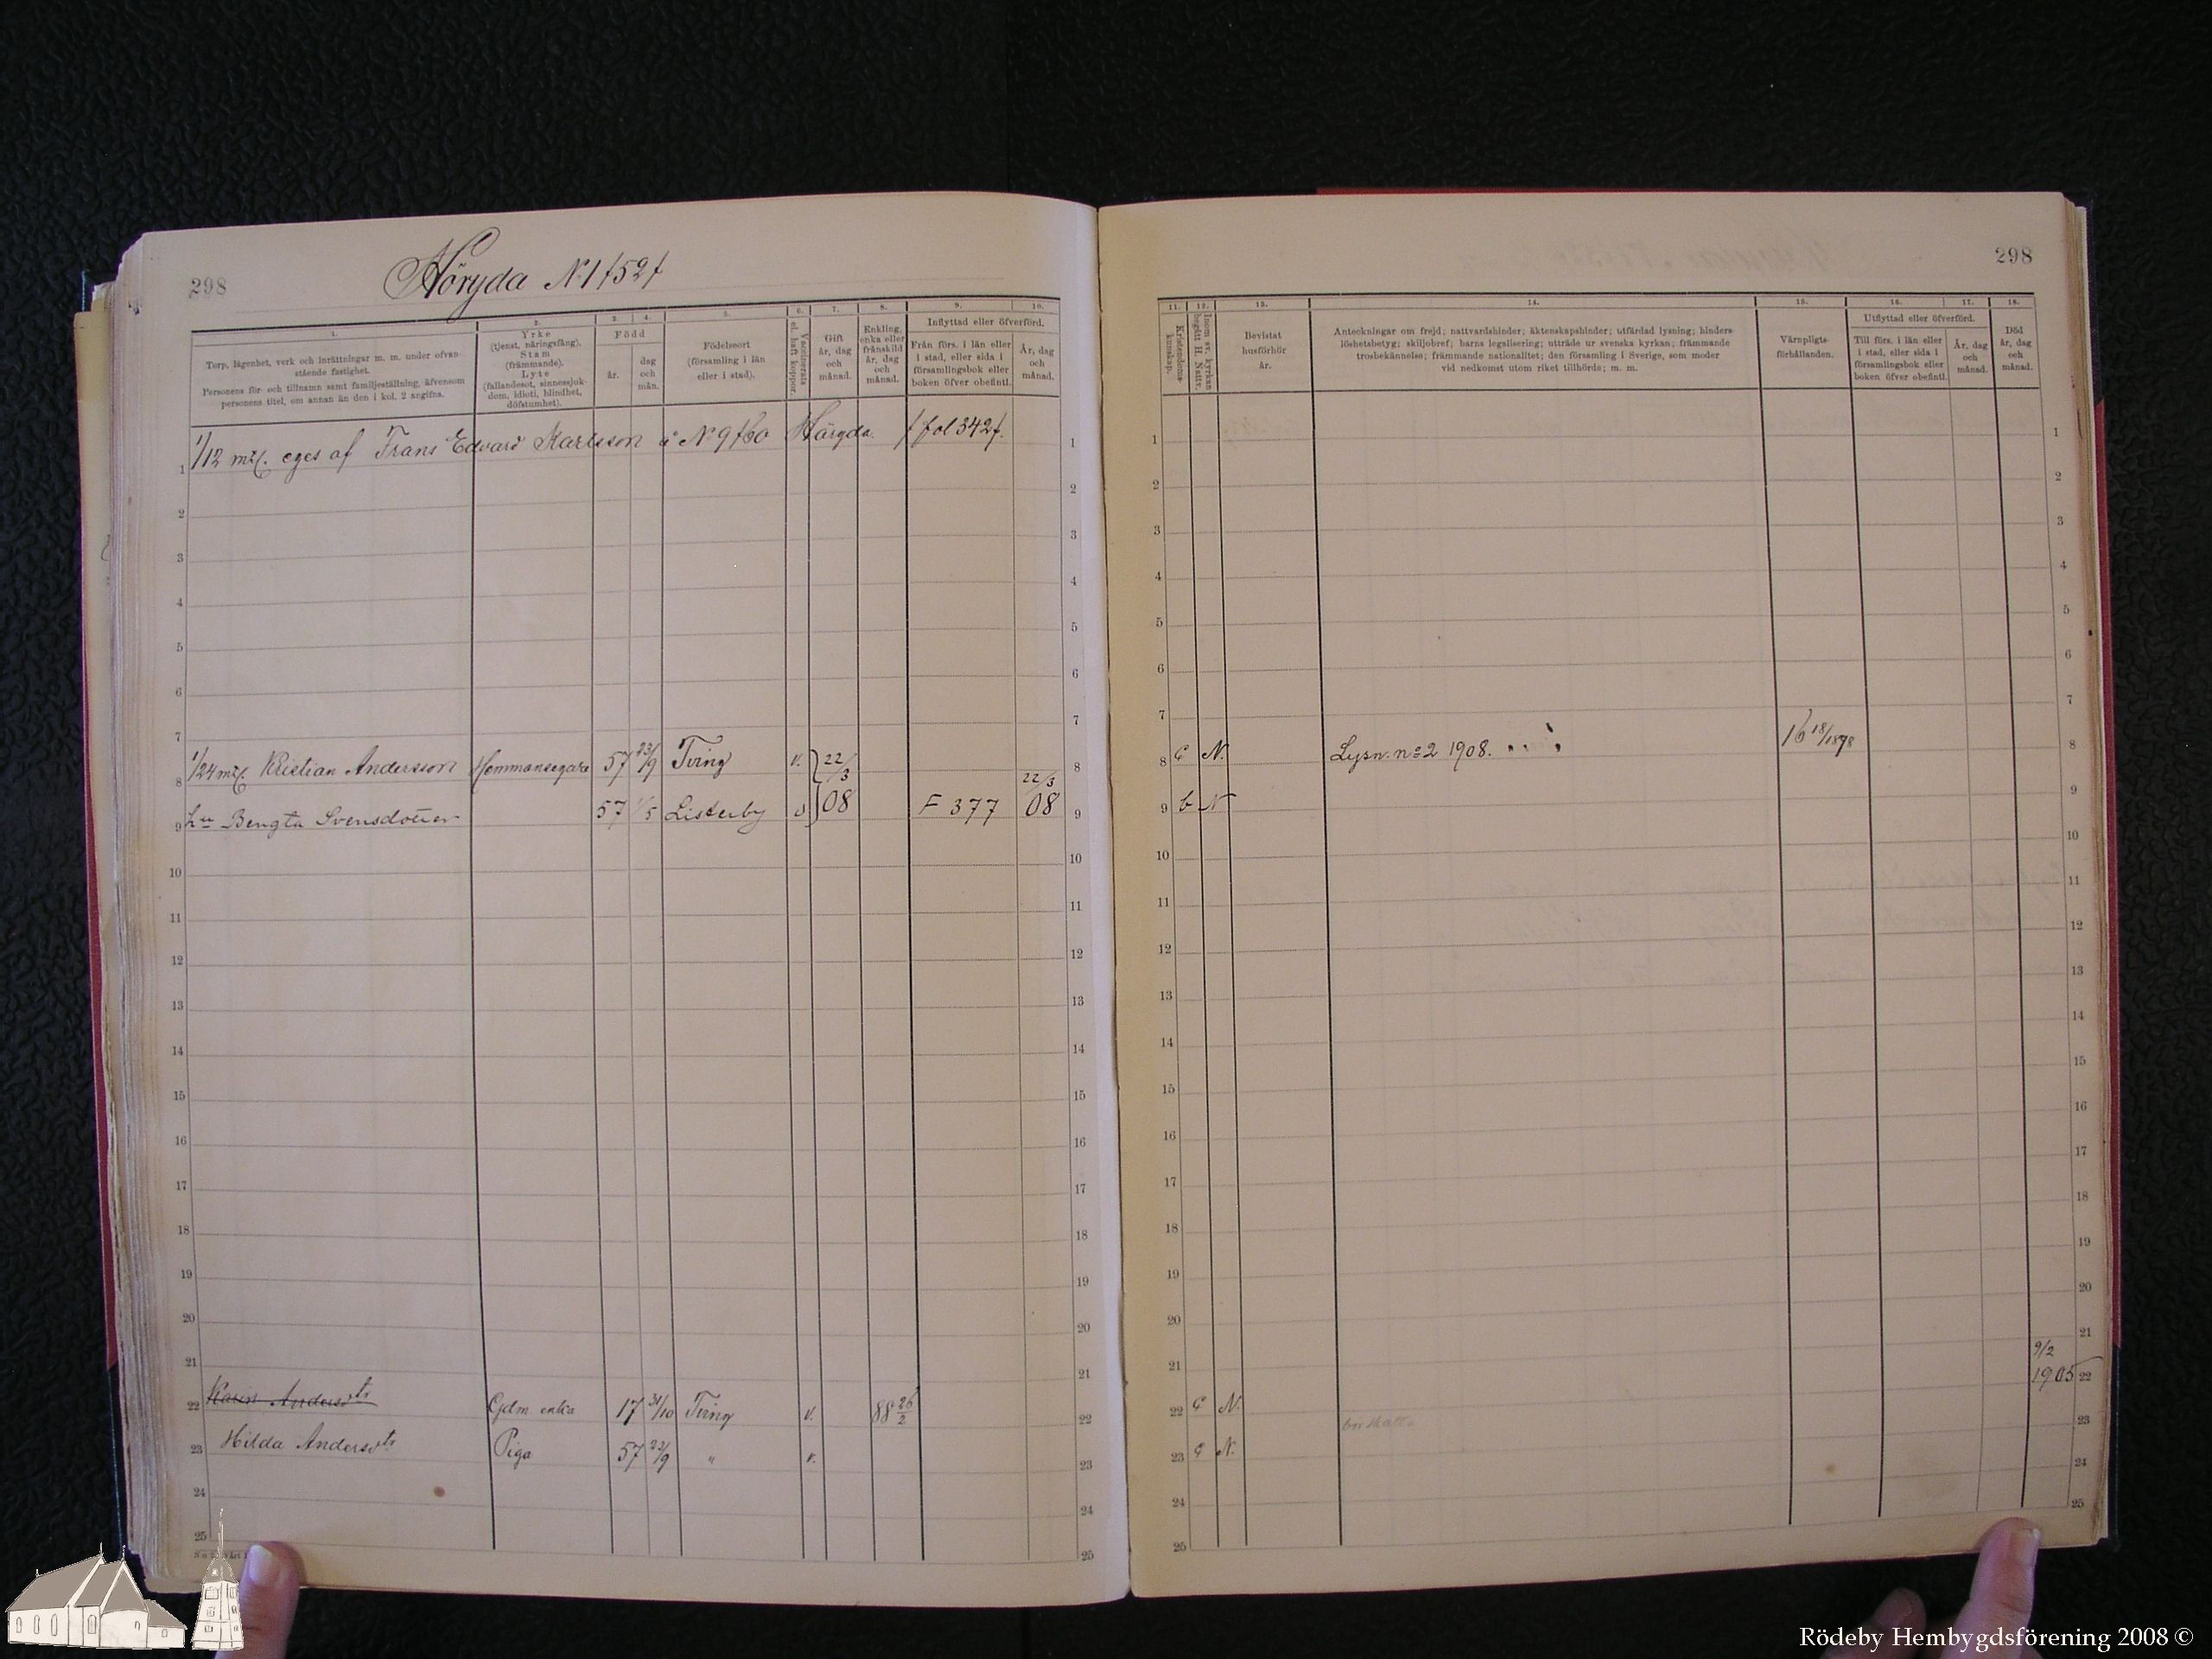 298
Höryda N:1 /52/
1. 2. 3. 4. 5. 6. 7. 8. 9. 10.
Torp, lägenhet, verk och inrättningar m. m. under ofvanstående fastighet.
Personens för- och tillnamn samt familjeställning, äfvensom personens titel, om annan än den i kol. 2 angifna.
Yrke
(tjenst, näringsfång).
Stam
(främmande).
Lyte
(fallandesot, sinnessjukdom, idioti, blindhet, döfstumhet).
Född
år.
dag och mån.
Födelseort
(församling i län eller i stad).
Vaccinerats el. haft koppor.
Gift
år, dag och månad.
Enkling, enka eller frånskild
år, dag och månad.
Inflyttad eller öfverförd.
Från förs. i län eller i stad, eller sida i församlingsbok eller boken öfver obefintl.
År, dag och månad.
1 1/12 mtl. eges af Frans Edvard Karlsson å N:o 9 /60 Höryda. /fol 342/. 1
2 2
3 3
4 4
5 5
6 6
7 7
8 1/24 mtl. Kristian Andersson Hemmansegare 57 23/9 Tving v. 22/3 8
9 hu Bengta Svensdotter 57 1/5 Listerby v 08 F 377 22/3 08 9
10 10
11 11
12 12
13 13
14 14
15 15
16 16
17 17
18 18
19 19
20 20
21 21
22 Karin Andersdtr Gdm enka 17 31/10 Tving v. 88 26/2 22
23 Hilda Andersdtr Piga 57 23/9 " v. 23
24 24
25 25
298
11. 12. 13. 14. 15. 16. 17. 18.
Kristendomskunskap.
Inom sv. kyrkan begått H. Nattv.
Bevistat husförhör år.
Anteckningar om frejd; nattvardshinder; äktenskapshinder; utfärdad lysning; hinderslöshetsbetyg; skiljobref; barns legalisering; utträde ur svenska kyrkan; främmande trosbekännelse; främmande nationalitet; den församling i Sverige, som moder vid nedkomst utom riket tillhörde; m. m.
Värnpligtsförhållanden.
Utflyttad eller öfverförd.
Till förs. i län eller i stad, eller sida i församlingsbok eller boken öfver obefintl.
År, dag och månad.
Död
år, dag och månad.
1 1
2 2
3 3
4 4
5 5
6 6
7 7
8 c N. Lysn. no 2 1908. 16 18/1878 8
9 b N 9
10 10
11 11
12 12
13 13
14 14
15 15
16 16
17 17
18 18
19 19
20 20
21 21
22 c N. 9/2 1905 22
23 c N. 23
24 24
25 25
Rödeby Hembygdsförening 2008 ©